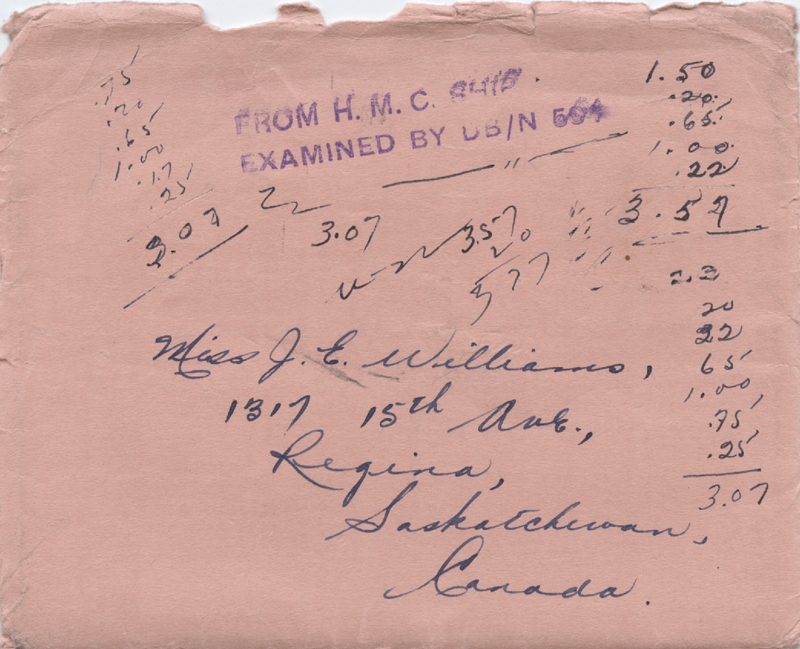 .75
.20
.65
1.00
.17
.25
3.07
FROM H. M. C. SHIP
EXAMINED BY DB/N 504
1.50
.20
.65
1.00
.22
3.57
22
3.07
3.57
20
3 77
2.2
20
22
65
1.00
.75
.25
3.07
Miss J. E. Williams,
1317 15th Ave.,
Regina,
Saskatchewan,
Canada.